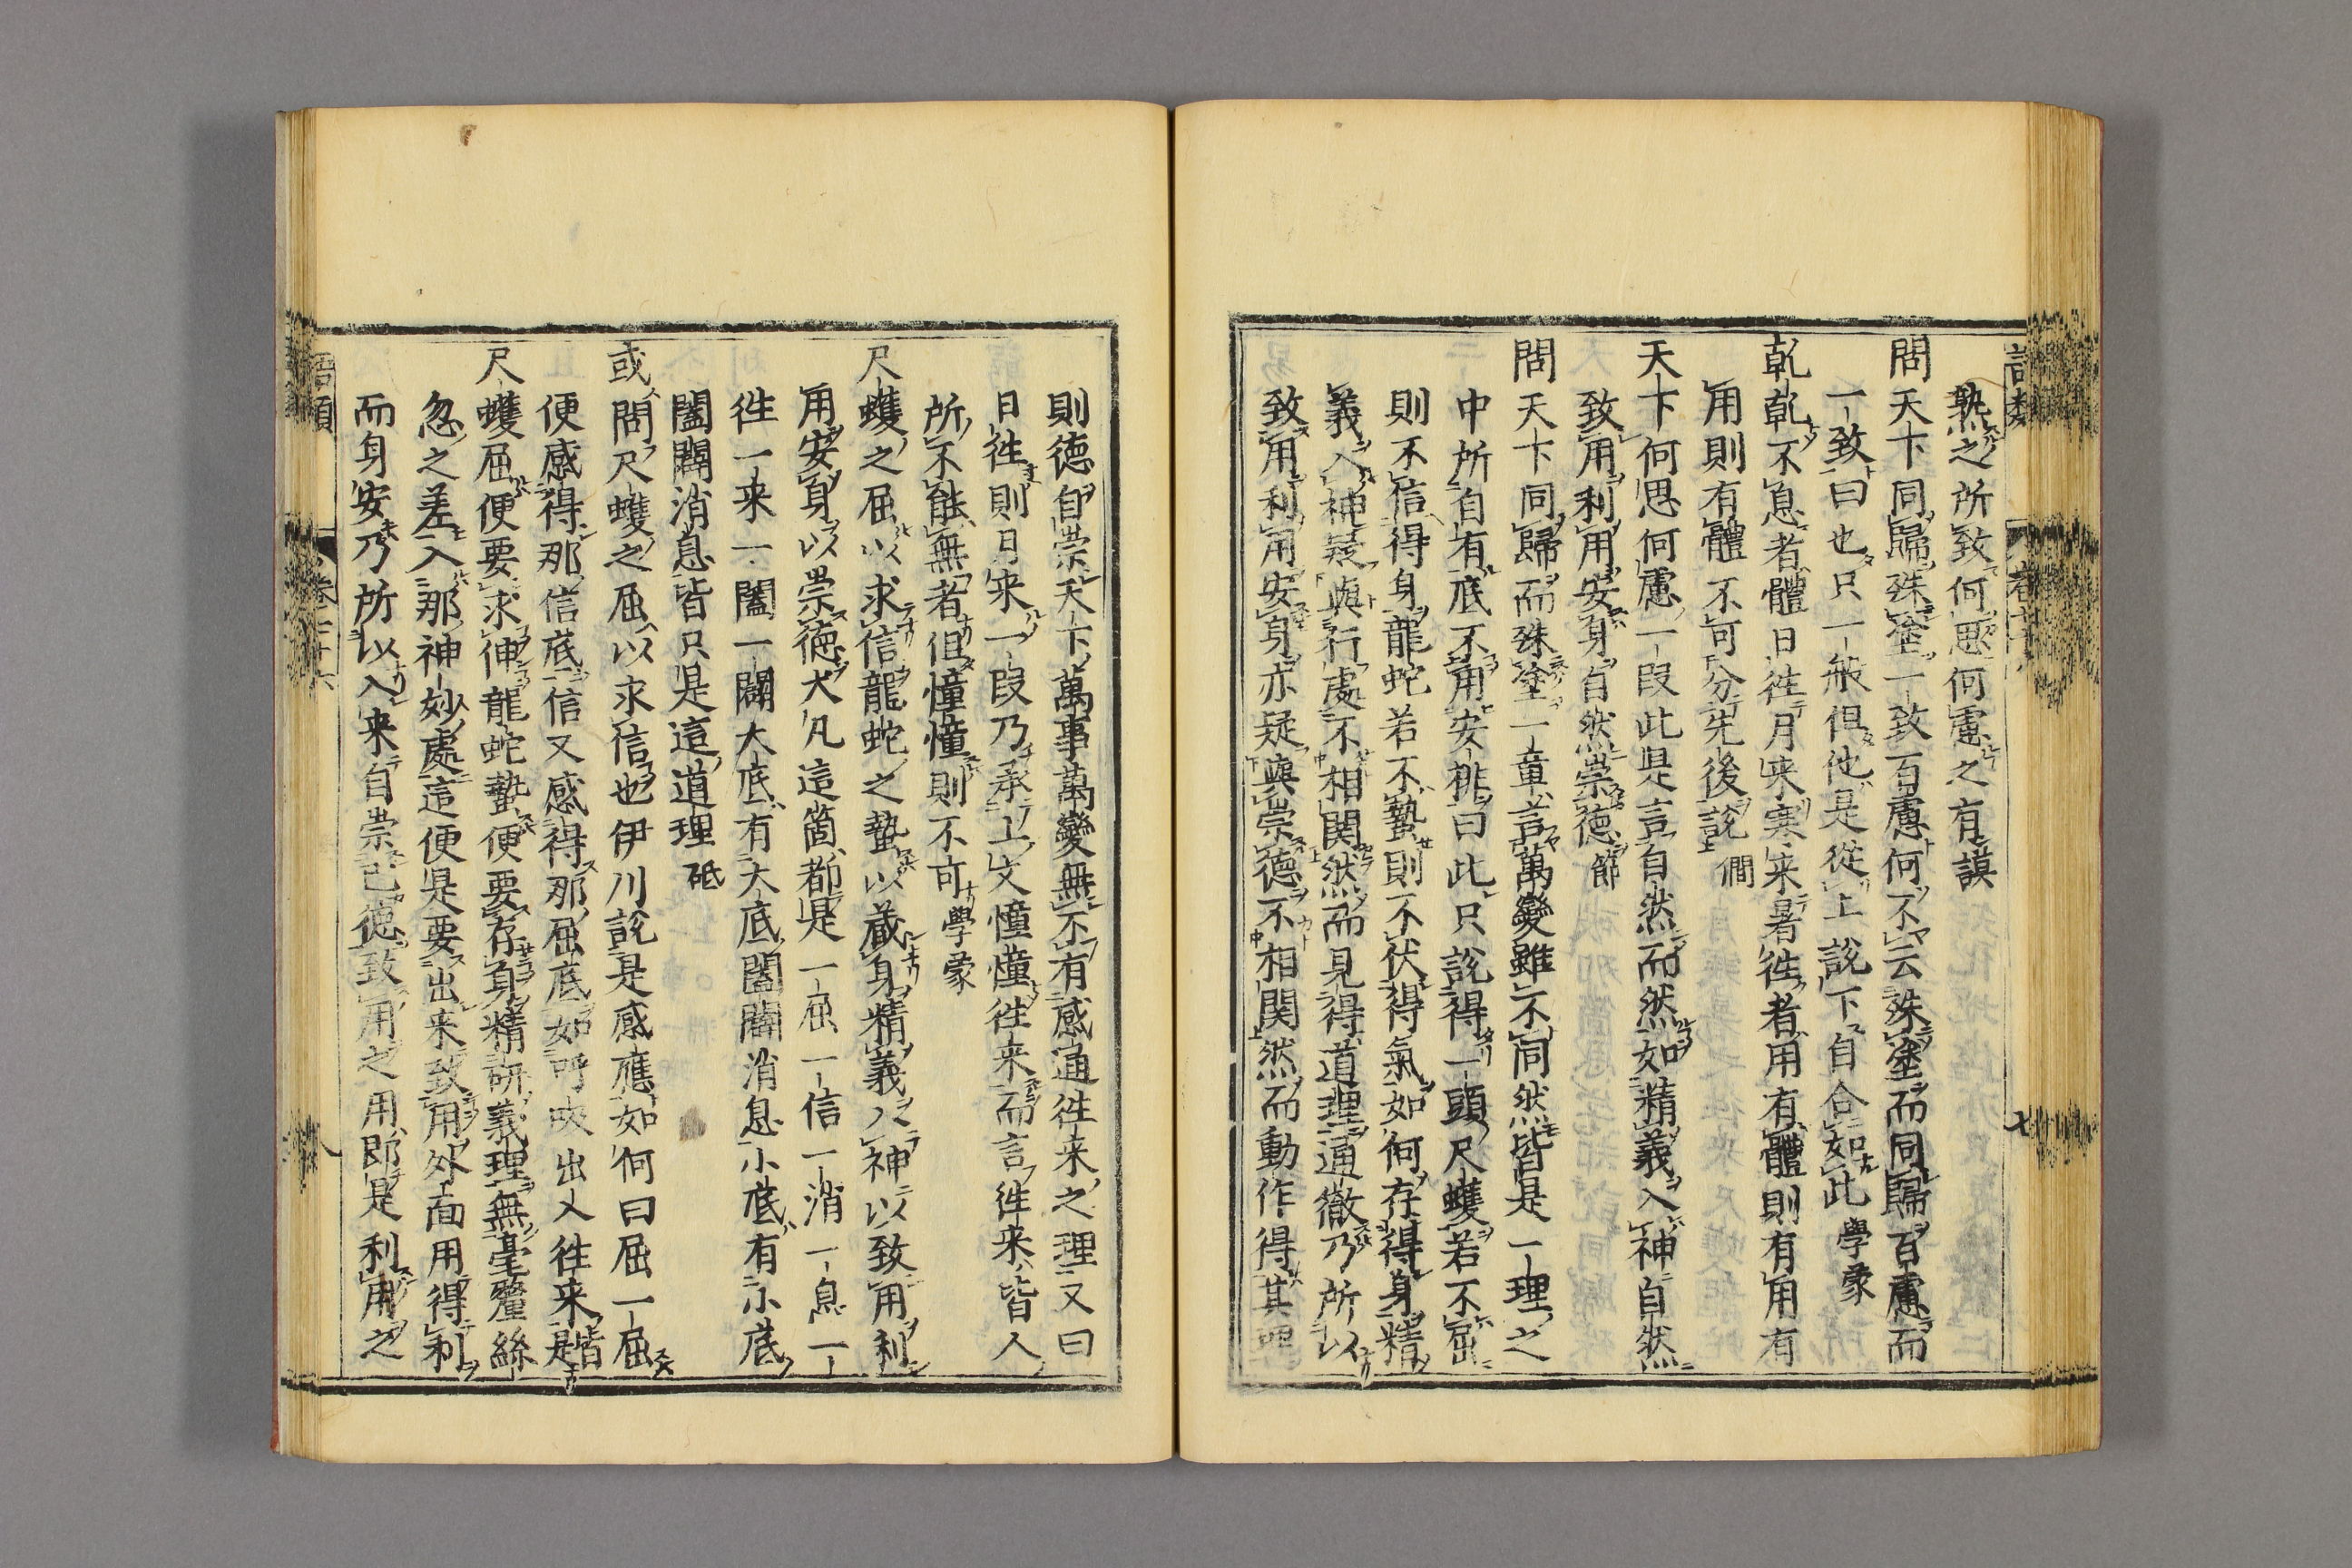 熟之所致何思何慮之有謨
問天下同歸殊塗一致百慮何不云殊塗而同歸百慮而
一致曰也只一般但他是從上說下自合如此學蒙
乾乾不息者體日往月来寒来暑往者用有體則有用有
用則有體不可分先後說僩
天下何思何慮一段此是言自然而然如精義入神自然
致用利用安身自然崇德節
問天下同歸而殊塗一章言萬變雖不同然皆是一理之
中所自有底不用安排曰此只說得一頭尺蠖若不屈
則不信得身龍蛇若不蟄則不伏得氣如何存得身精
義入神疑與行處不相関然而見得道理通徹乃所以
致用利用安身亦疑與崇德不相関然而動作得其理
則德自崇天下萬事萬變無不有感通往来之理又曰
日往則月来一段乃承上文憧憧往来而言往来皆人
所不能無者但憧憧則不可學蒙
尺蠖之屈以求信龍蛇之蟄以藏身精義入神以致用利
用安身以崇德大凡這箇都是一屈一信一消一息一
往一来一闔一闢大底有大底闔闢消息小底有小底
闔闢消息皆只是這道理砥
或問尺蠖之屈以求信也伊川說是感應如何曰屈一屈
便感得那信底信又感得那屈底如呼吸出入往来皆是
尺蠖屈便要求伸龍蛇蟄便要存身精研義理無毫釐絲
忽之差入那神妙處這便是要出来致用外面用得利
而身安乃所以入来自崇已德致用之用即是利用之